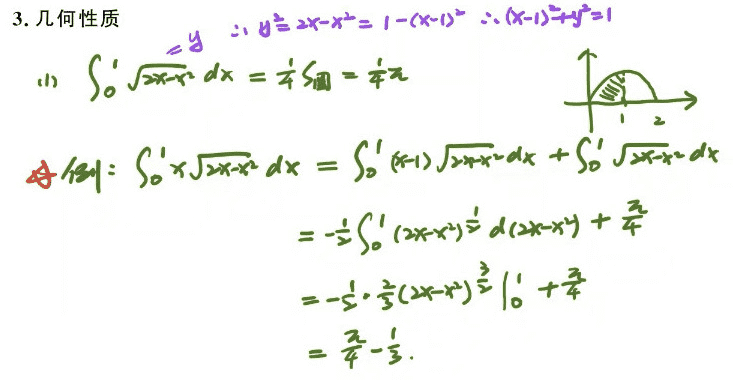 3. 几何性质
= y ∴ y² = 2x-x² = 1-(x-1)² ∴ (x-1)²+y²=1
(1) ∫₀¹ √(2x-x²) dx = 1/4 S圆 = 1/4 π
1 2
☆ 例: ∫₀¹ x√(2x-x²) dx = ∫₀¹ (x-1)√(2x-x²) dx + ∫₀¹ √(2x-x²) dx
= -1/2 ∫₀¹ (2x-x²)^(1/2) d(2x-x²) + π/4
= -1/2 · 2/3 (2x-x²)^(3/2) |₀¹ + π/4
= π/4 - 1/3.